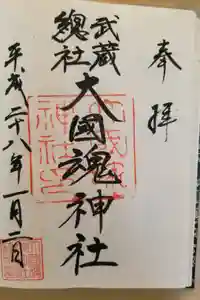 奉拝
武蔵
總社
大國魂神社
平成二十八年一月二日